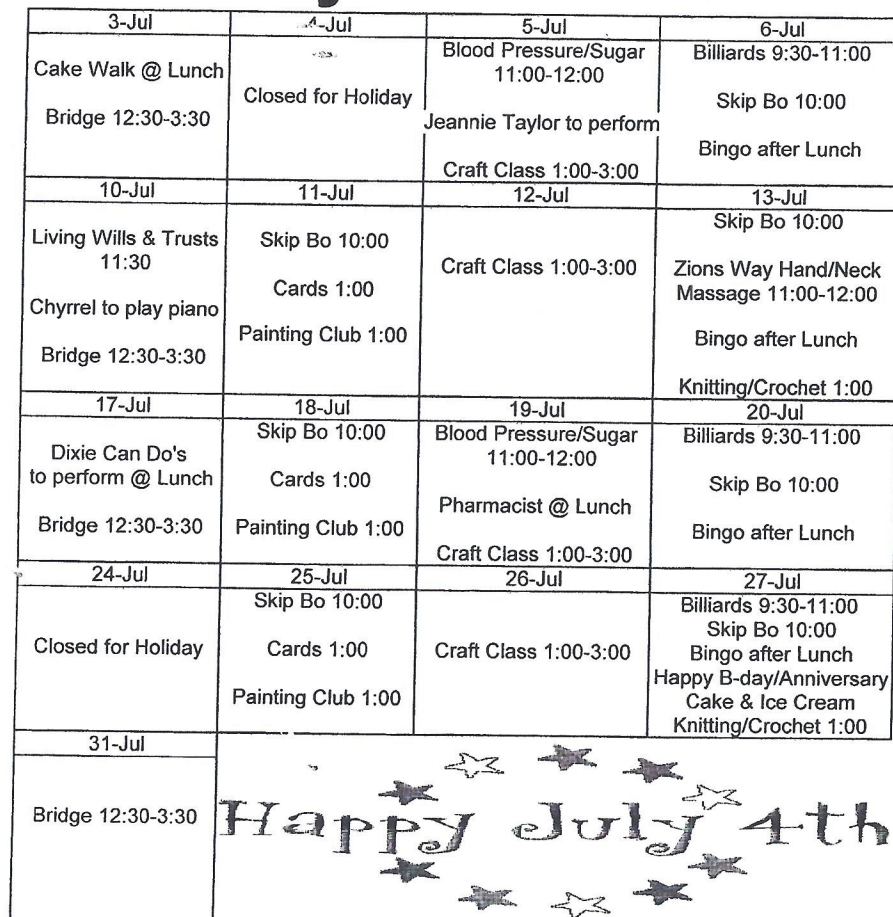 3-Jul
Cake Walk @ Lunch
Bridge 12:30-3:30
4-Jul
Closed for Holiday
5-Jul
Blood Pressure/Sugar
11:00-12:00
Jeannie Taylor to perform
Craft Class 1:00-3:00
6-Jul
Billiards 9:30-11:00
Skip Bo 10:00
Bingo after Lunch
10-Jul
Living Wills & Trusts
11:30
Chyrrel to play piano
Bridge 12:30-3:30
11-Jul
Skip Bo 10:00
Cards 1:00
Painting Club 1:00
12-Jul
Craft Class 1:00-3:00
13-Jul
Skip Bo 10:00
Zions Way Hand/Neck
Massage 11:00-12:00
Bingo after Lunch
Knitting/Crochet 1:00
17-Jul
Dixie Can Do's
to perform @ Lunch
Bridge 12:30-3:30
18-Jul
Skip Bo 10:00
Cards 1:00
Painting Club 1:00
19-Jul
Blood Pressure/Sugar
11:00-12:00
Pharmacist @ Lunch
Craft Class 1:00-3:00
20-Jul
Billiards 9:30-11:00
Skip Bo 10:00
Bingo after Lunch
24-Jul
Closed for Holiday
25-Jul
Skip Bo 10:00
Cards 1:00
Painting Club 1:00
26-Jul
Craft Class 1:00-3:00
27-Jul
Billiards 9:30-11:00
Skip Bo 10:00
Bingo after Lunch
Happy B-day/Anniversary
Cake & Ice Cream
Knitting/Crochet 1:00
31-Jul
Bridge 12:30-3:30
Happy July 4th